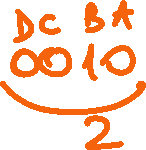 DC BA
0010
2